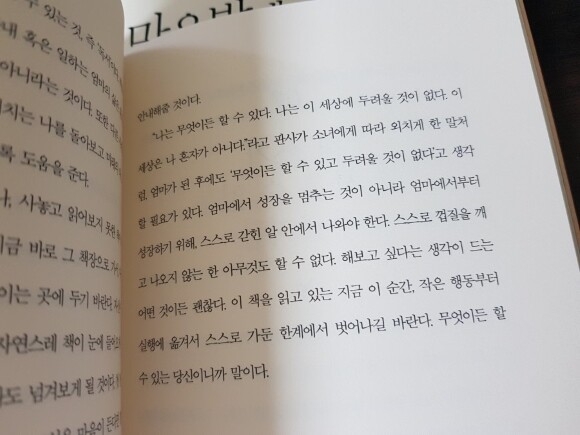 수 있는 것, 즉
내 혹은 일하는 엄마의
아니라는 것이다. 또한
치는 나를 돌아보고
록 도움을 준다.
사놓고 읽어보지 못한
지금 바로 그 책장으로
이는 곳에 두기 바란다.
자연스레 책이 눈에
넘겨보게 될 것이다.
마음이 든다
안내해줄 것이다.
"나는 무엇이든 할 수 있다. 나는 이 세상에 두려울 것이 없다. 이
세상은 나 혼자가 아니다."라고 판사가 소녀에게 따라 외치게 한 말처
럼, 엄마가 된 후에도 '무엇이든 할 수 있고 두려울 것이 없다'고 생각
할 필요가 있다. 엄마에서 성장을 멈추는 것이 아니라 엄마에서부터
성장하기 위해, 스스로 갇힌 알 안에서 나와야 한다. 스스로 껍질을 깨
고 나오지 않는 한 아무것도 할 수 없다. 해보고 싶다는 생각이 드는
어떤 것이든 괜찮다. 이 책을 읽고 있는 지금 이 순간, 작은 행동부터
실행에 옮겨서 스스로 가둔 한계에서 벗어나길 바란다. 무엇이든 할
수 있는 당신이니까 말이다.